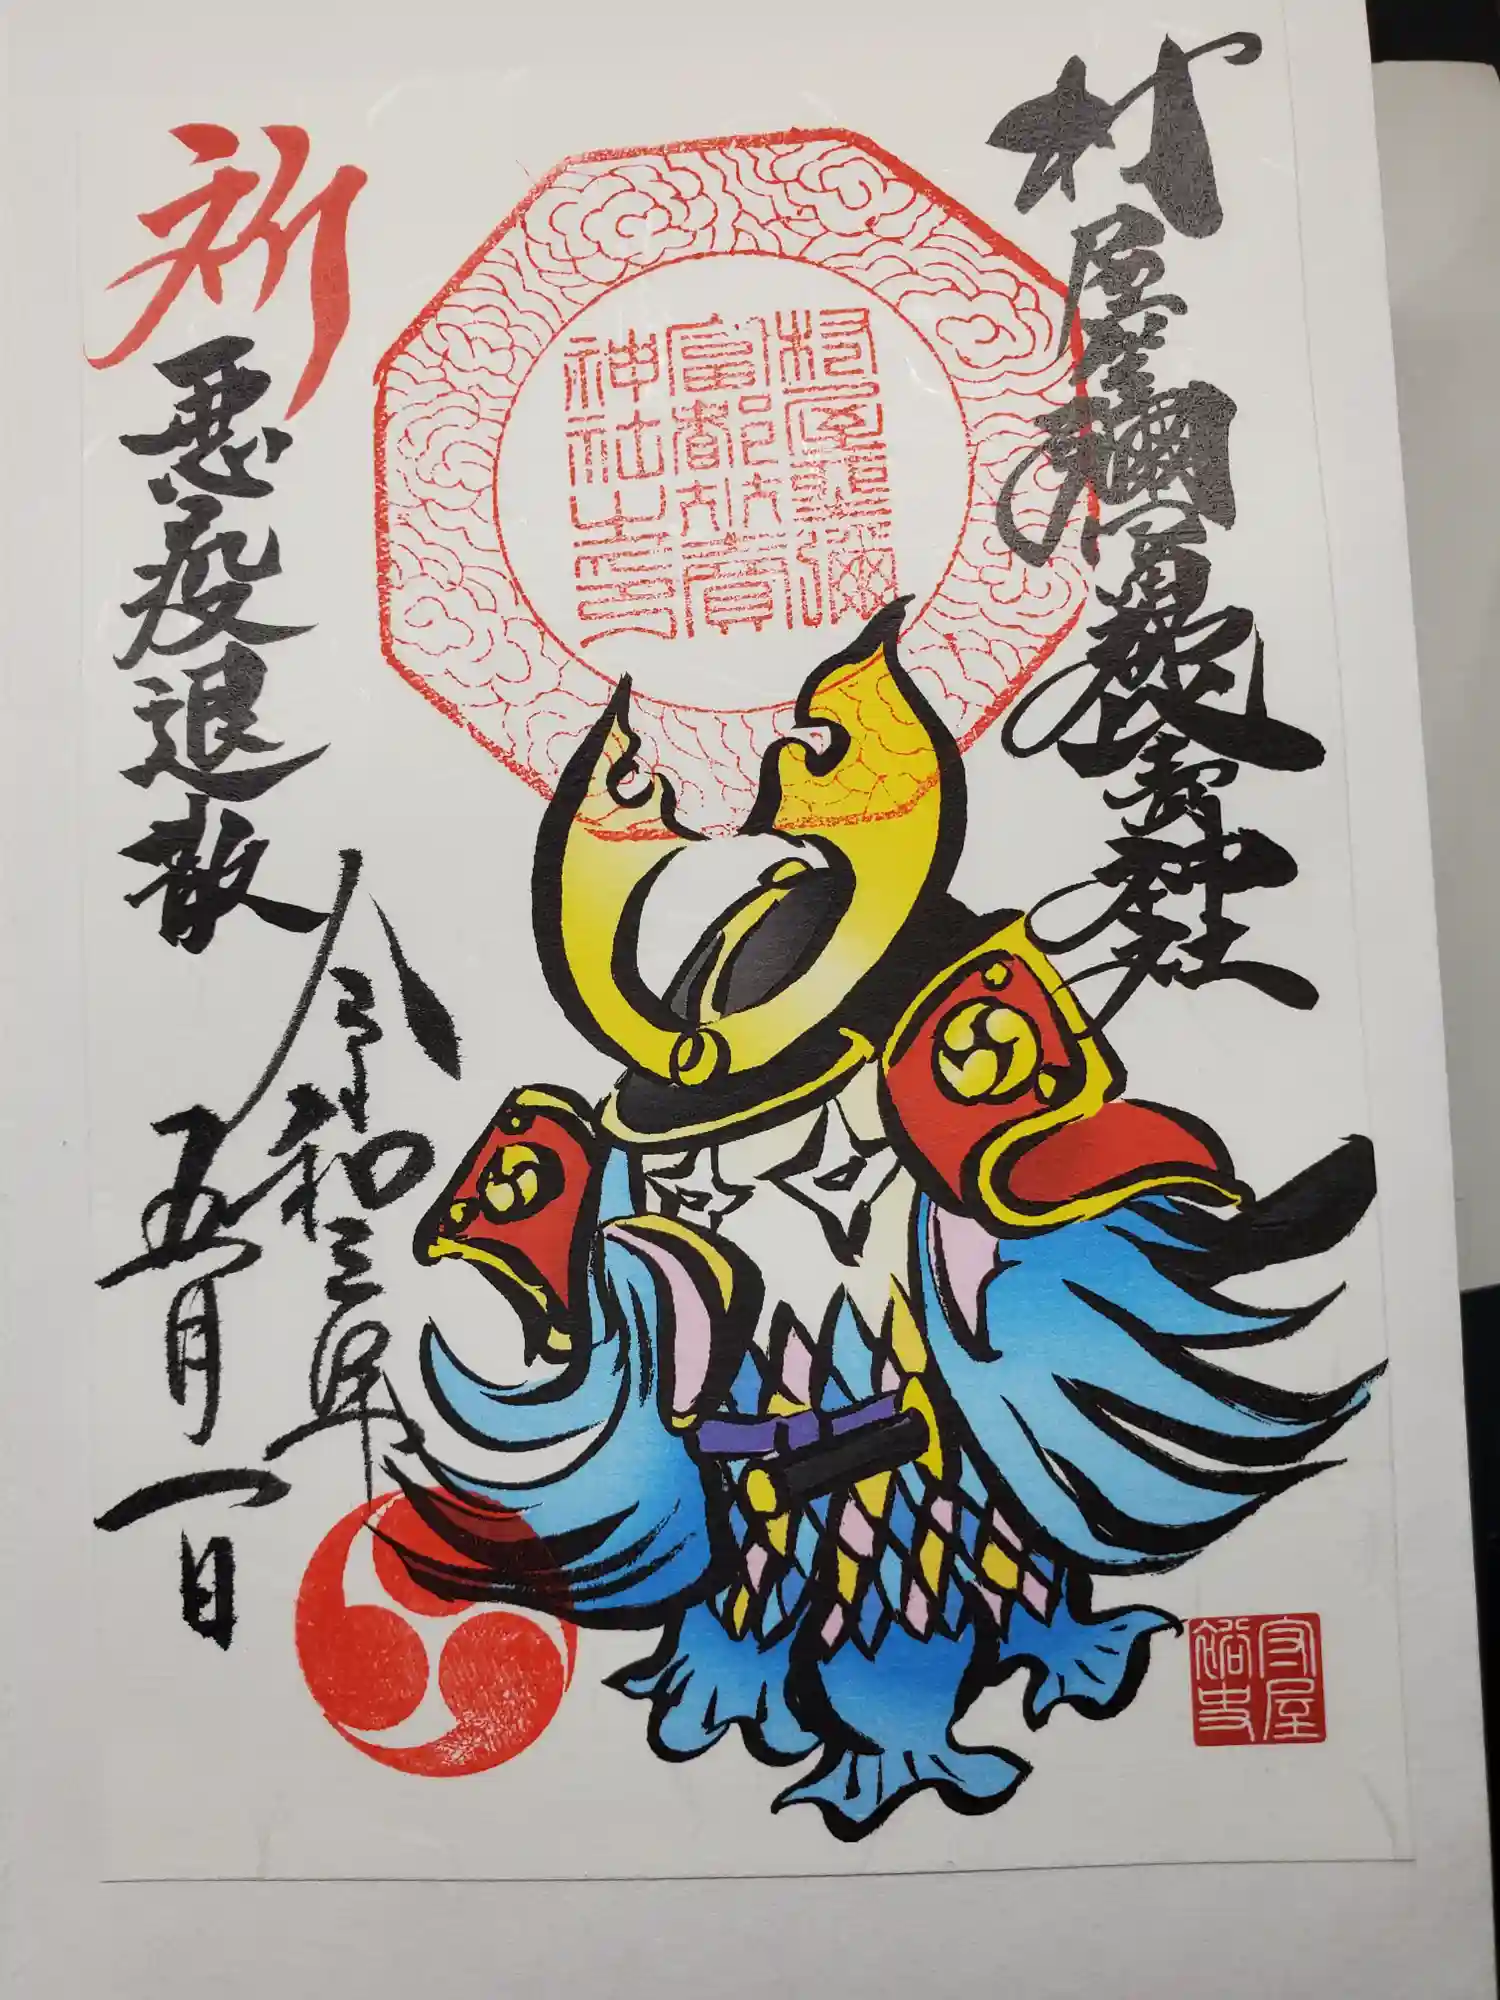 村屋坐彌冨都比賣神社
村屋坐彌
富都比賣
神社之印
祈
悪疫退散
令和三年
五月一日
守屋
裕史